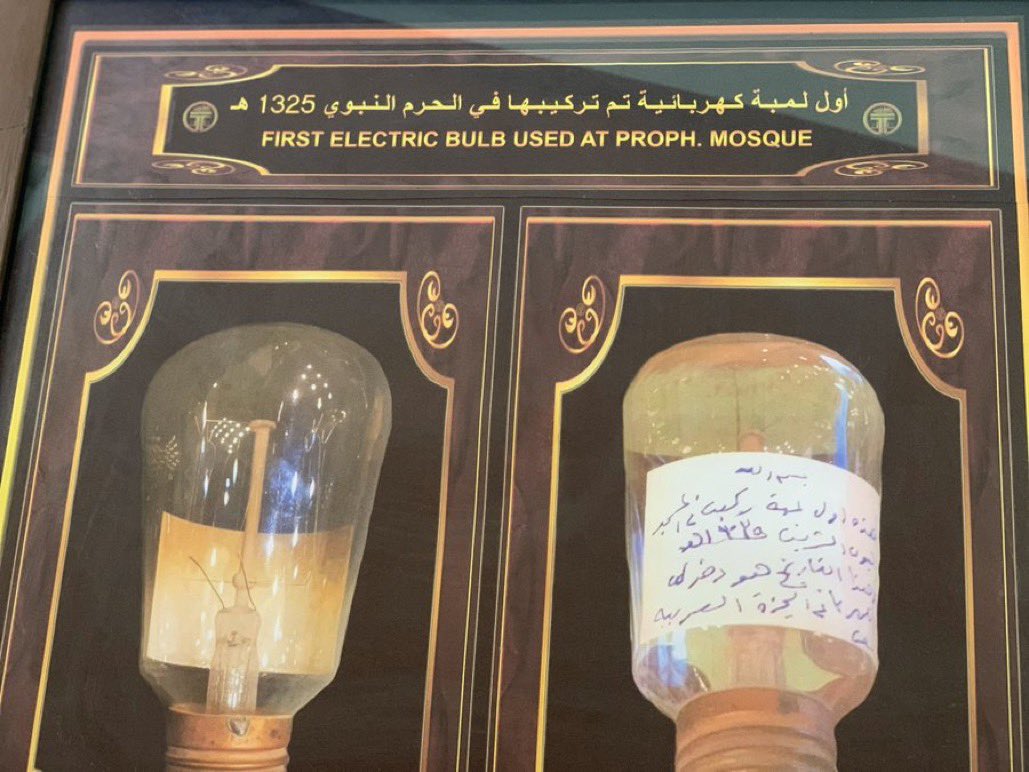 أول لمبة كهربائية تم تركيبها في الحرم النبوي 1325 هـ
FIRST ELECTRIC BULB USED AT PROPH. MOSQUE
بسم الله
هذه اول لمبة ركبت في
الشريف
هذا التاريخ هو دخول
في الجزيرة العربية